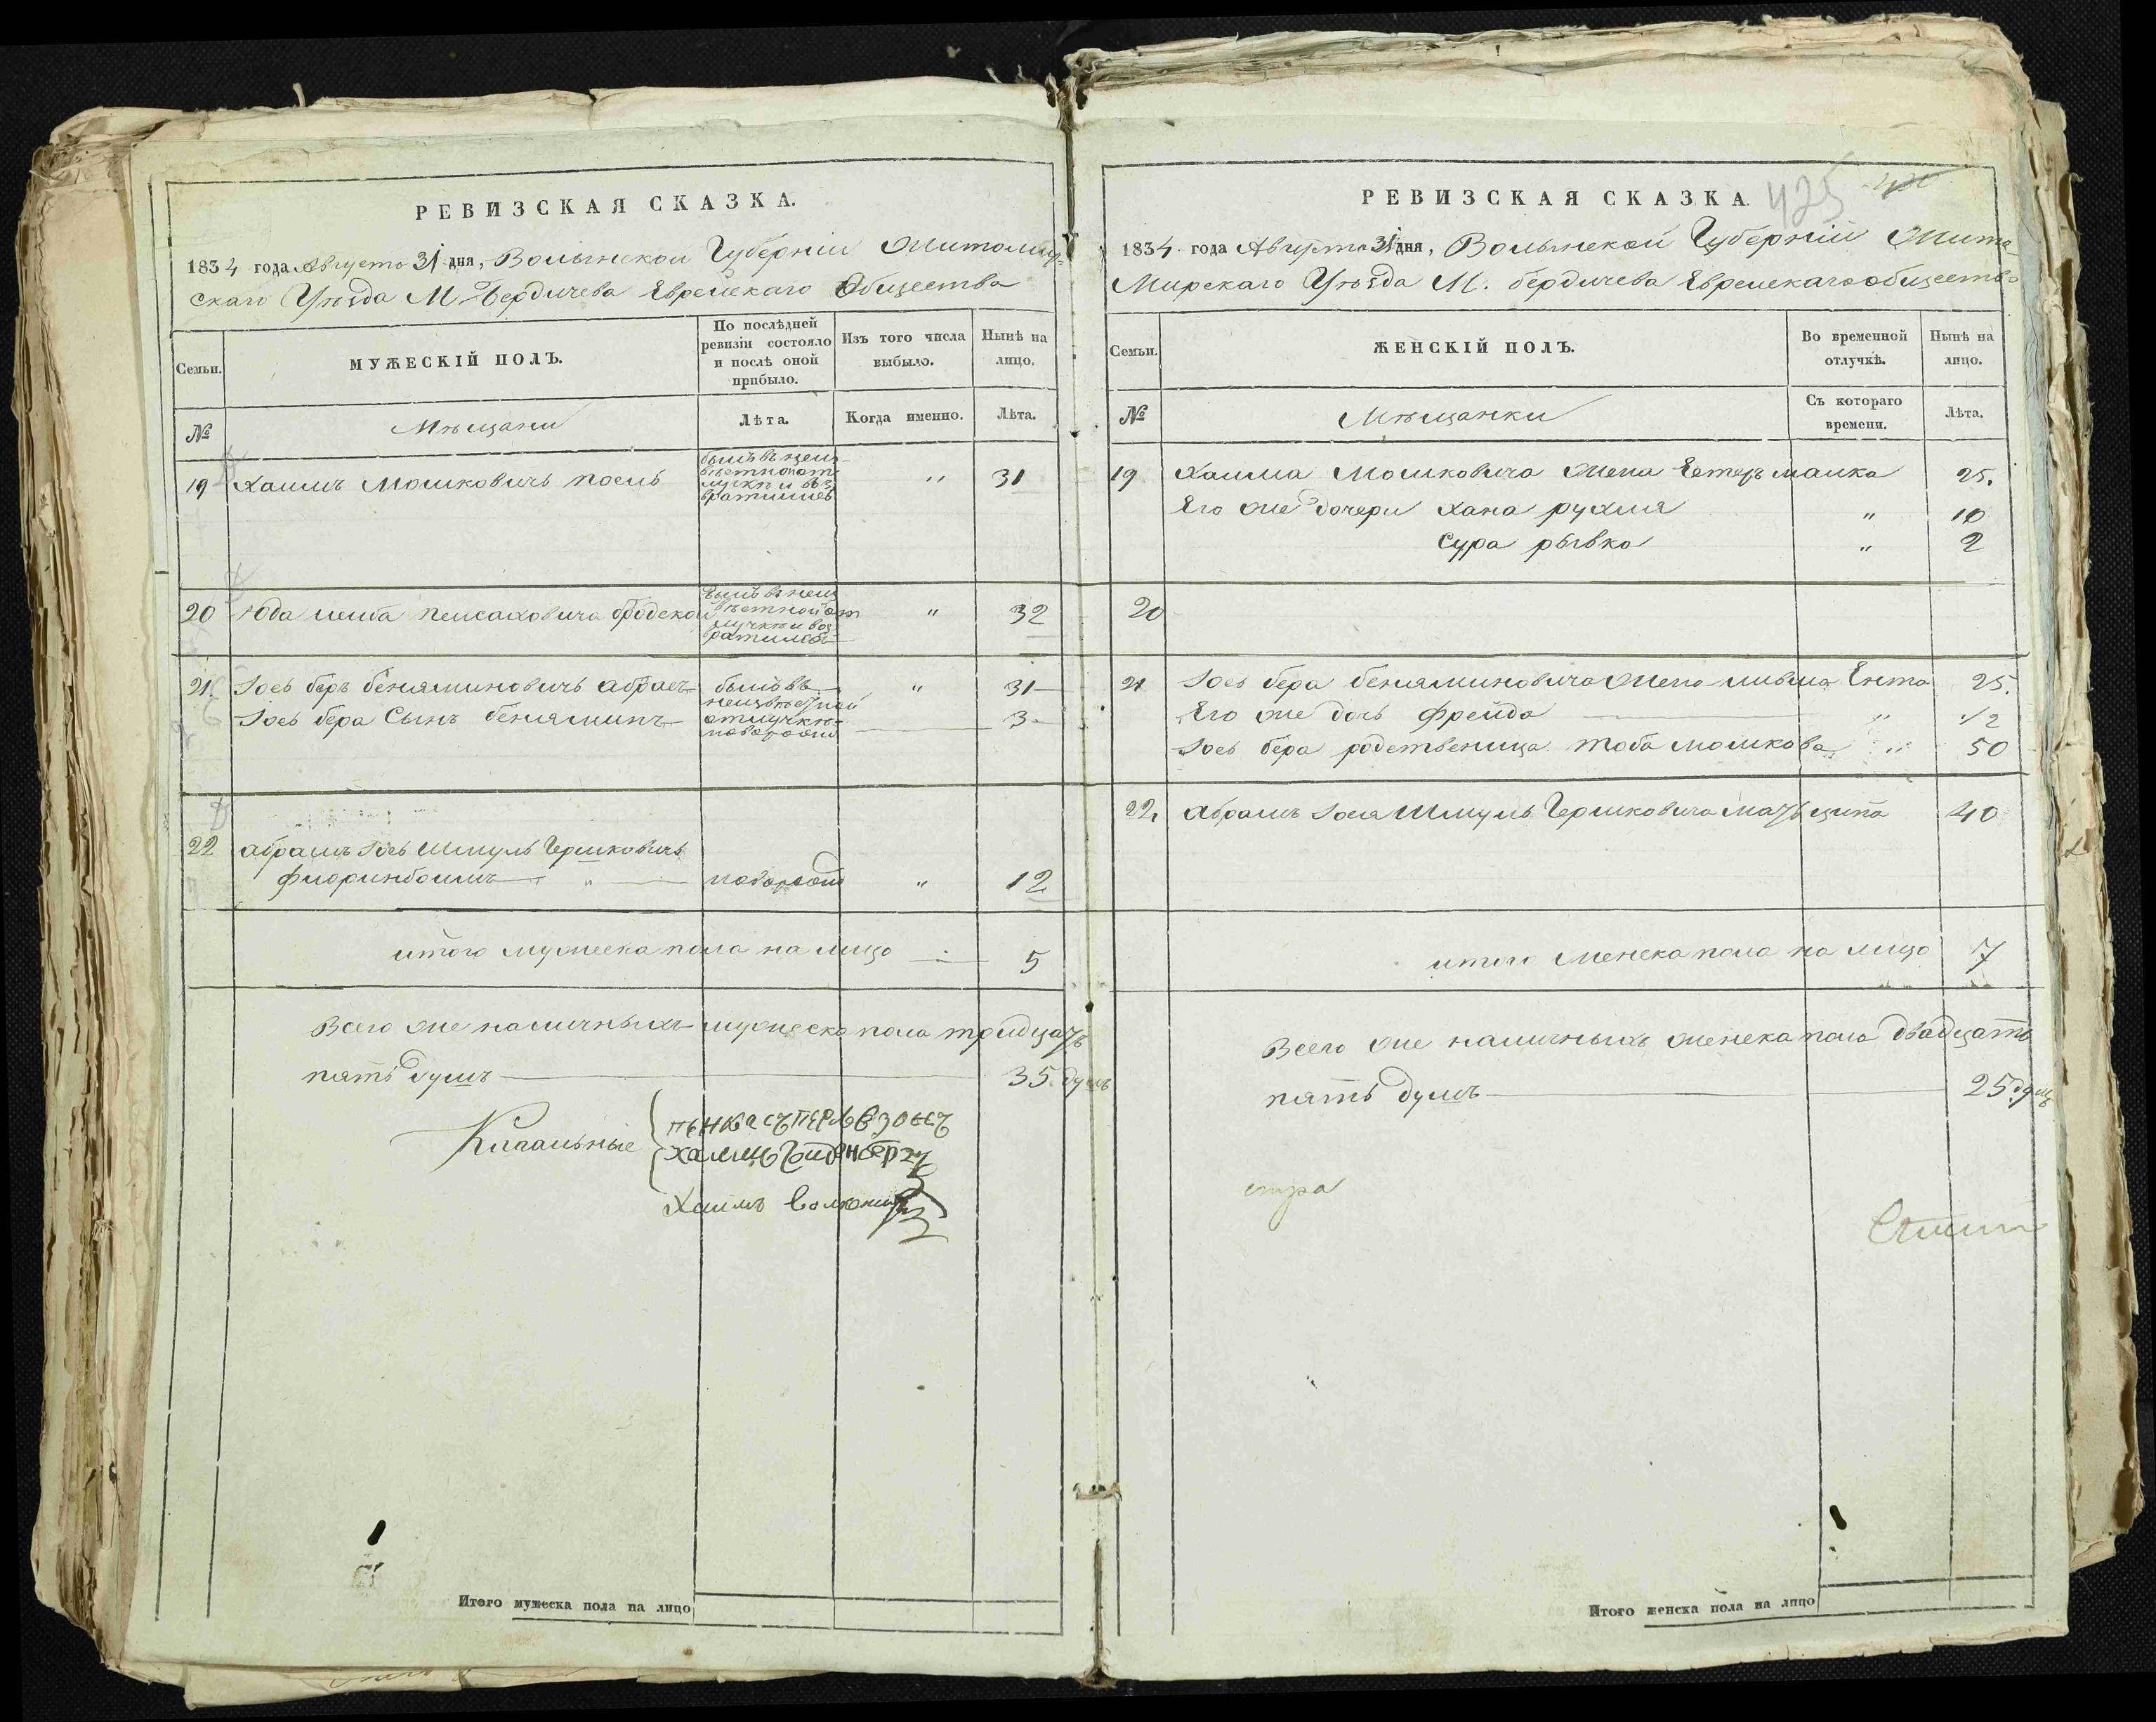 РЕВИЗСКАЯ СКАЗКА.
1834 года Августа 31 дня, Волынской Губерніи Житомир-
скаго Уѣзда М. Бердичева Еврейскаго Общества
Семьи.
МУЖЕСКІЙ ПОЛЪ.
По послѣдней ревизіи состояло и послѣ оной прибыло.
Изъ того числа выбыло.
Нынѣ на лицо.
№
Мѣщани
Лѣта.
Когда именно.
Лѣта.
19 Хаимъ Мошковичъ
былъ въ неиз-
вѣстной от-
лучкѣ и воз
вратился
" 31
20 Юда Лейба Пейсаховичъ бродской
былъ въ неиз
вѣстной от
лучкѣ и воз
ратился
" 32
21. Іось беръ беняминовичъ
былъ въ
неизвѣстной
отлучкѣ
" 31
Іось бера Сынъ беняминъ
новорожд
3
22 абрамъ Іось Шмуль Гершковичъ
флоринбоимъ " новорожд " 12
итого мужеска пола на лицо 5
Всего же наличныхъ мужеска пола тридцать
пять душъ 35 душъ
Кагальные
Хаимъ
РЕВИЗСКАЯ СКАЗКА
425
1834 года Августа 31 дня, Волынской Губерніи Жито-
мирскаго Уѣзда М. бердичева Еврейскаго общества
Семьи.
ЖЕНСКІЙ ПОЛЪ.
Во временной отлучкѣ.
Нынѣ на лицо.
№
Мѣщанки
Съ котораго времени.
Лѣта.
19 Хаима Мошковича жена Естеръ малка 25.
Его же дочери хана рухля " 10
Сура рывка " 2
20
21 Іось бера беняминовича жена Ента 25.
Его же дочь фрейда " 1/2
Іось бера родственица тоба мошкова " 50
22 абрамъ Іося Шмуль Гершковича мать ципа 40
итого женска пола на лицо 7
Всего же наличныхъ женска пола двадцать
пять душъ 25 душъ
Итого мужеска пола на лицо
Итого женска пола на лицо